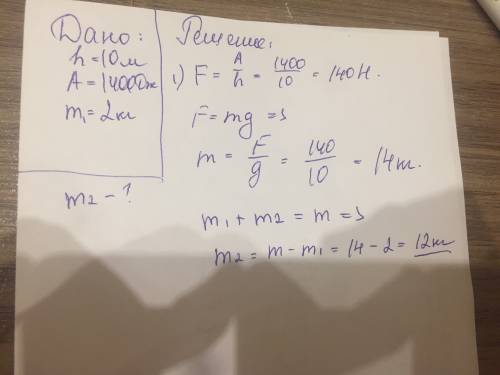 Дано:
h=10м
A=1400Дж
m₁=2кг
m₂-?
Решение:
1) F = A/h = 1400/10 = 140Н.
F=mg =>
m = F/g = 140/10 = 14кг.
m₁+m₂ = m =>
m₂ = m - m₁ = 14 - 2 = 12кг